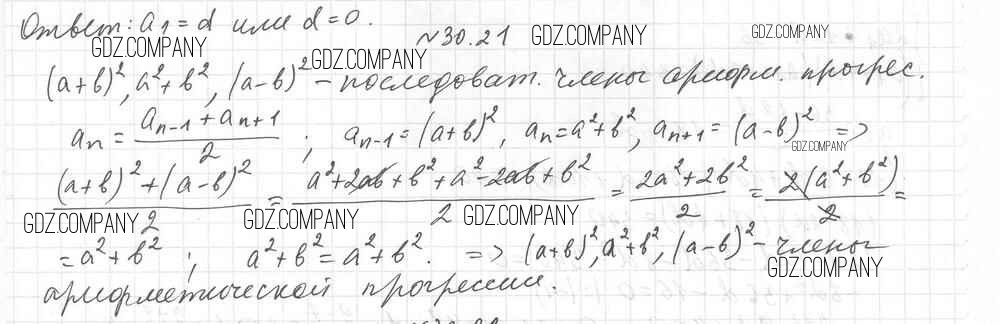 Ответ: a₁ = d или d = 0.
GDZ.COMPANY
№30.21 GDZ.COMPANY GDZ.COMPANY
GDZ.COMPANY
(a+b)², a²+b², (a−b)² – последоват. члены арифм. прогрес.
aₙ = (aₙ₋₁ + aₙ₊₁)/2 ; aₙ₋₁ = (a+b)², aₙ = a²+b², aₙ₊₁ = (a−b)² =>
GDZ.COMPANY
((a+b)² + (a−b)²)/2 = (a²+2ab+b²+a²−2ab+b²)/2 = (2a²+2b²)/2 = 2(a²+b²)/2 =
GDZ.COMPANY GDZ.COMPANY GDZ.COMPANY
= a²+b² ; a²+b² = a²+b². => (a+b)², a²+b², (a−b)² – члены
GDZ.COMPANY
арифметической прогрессии.